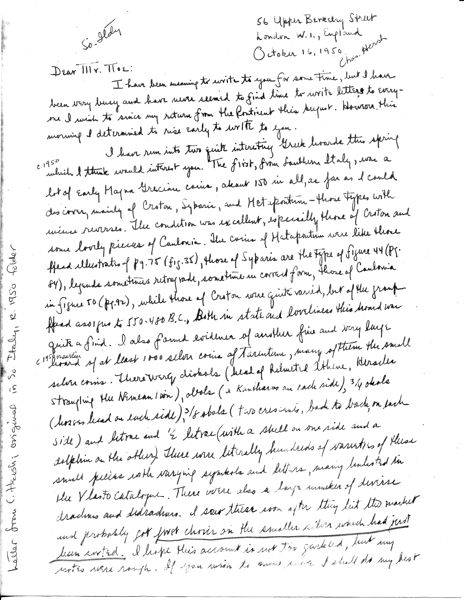 So. Italy
56 Upper Berkeley Street
London W.1., England
October 16, 1950
Chas. Hersh
Dear Mr. Noe:
I have been meaning to write to you for some time, but I have
been very busy and have never seemed to find time to write letters to every-
one I wish to since my return from the Continent this August. However, this
morning I determined to rise early to write to you.
I have run into two quite interesting Greek hoards this spring
c. 1950
which I think would interest you. The first, from Southern Italy, was a
lot of Early Magna Grecian coins, about 150 in all, as far as I could
discover, mainly of Croton, Sybaris, and Metapontum - those types with
incuse reverses. The condition was excellent, especially those of Croton and
some lovely pieces of Caulonia. The coins of Metapontum were like those
Head illustrates p. 75 (fig. 35), those of Sybaris are the type of figure 44 (pg.
84), legends sometimes retrograde, sometimes in correct form, those of Caulonia
in figure 50 (pg. 92), while those of Croton were quite varied, but of the group
Head assigns to 550-480 B.C., Both in state and loveliness this hoard was
quite a find. I also found evidence of another fine and very large
hoard of at least 1000 silver coins of Tarentum, many of them the small
silver coins. There were diobols (head of helmeted Athene, Heracles
strangling the Nemean lion), obols (a Kantharos on each side), 3/4 obols
(horses head on each side) 3/8 obols (two crescents, back to back, on each
side) and litrae and 1/2 litrae (with a shell on one side and a
dolphin on the other) There were literally hundreds of varieties of these
small pieces with varying symbols and letters, many unlisted in
the Vlasto Catalogue. There were also a large number of diverse
drachms and didrachms. I saw these soon after they hit the market
and probably got first choice on the smaller silver which had just
been sorted. I hope this account is not too garbled, but my
notes were rough. If you wish to know more I shall do my best
Letter from C. Hersh, original in So. Italy, c. 1950 folder